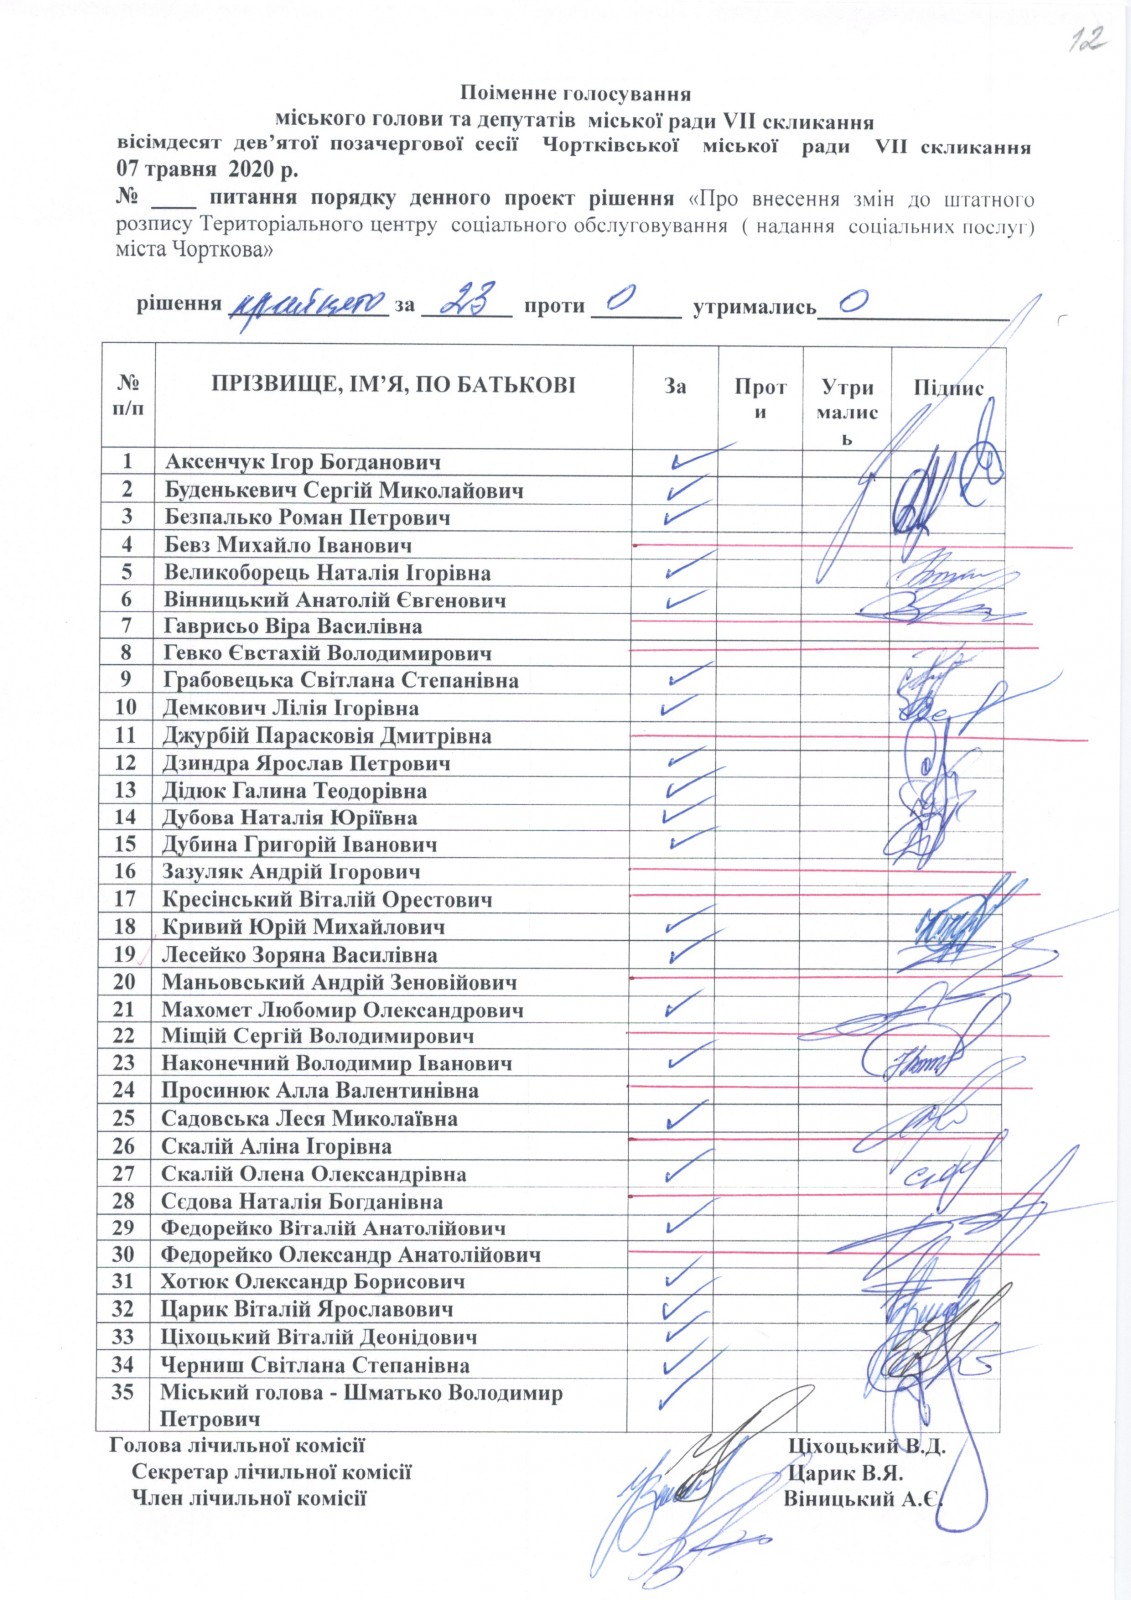 12
Поіменне голосування
міського голови та депутатів міської ради VII скликання
вісімдесят дев’ятої позачергової сесії Чортківської міської ради VII скликання
07 травня 2020 р.
№ ____ питання порядку денного проект рішення «Про внесення змін до штатного
розпису Територіального центру соціального обслуговування ( надання соціальних послуг)
міста Чорткова»
рішення прийнято за 23 проти 0 утримались 0
№ п/п ПРІЗВИЩЕ, ІМ’Я, ПО БАТЬКОВІ За Проти Утрималисьь Підпис
1 Аксенчук Ігор Богданович ✓
2 Буденькевич Сергій Миколайович ✓
3 Безпалько Роман Петрович ✓
4 Бевз Михайло Іванович
5 Великоборець Наталія Ігорівна ✓
6 Вінницький Анатолій Євгенович ✓
7 Гаврисьо Віра Василівна
8 Гевко Євстахій Володимирович
9 Грабовецька Світлана Степанівна ✓
10 Демкович Лілія Ігорівна ✓
11 Джурбій Парасковія Дмитрівна
12 Дзиндра Ярослав Петрович ✓
13 Дідюк Галина Теодорівна ✓
14 Дубова Наталія Юріївна ✓
15 Дубина Григорій Іванович ✓
16 Зазуляк Андрій Ігорович
17 Кресінський Віталій Орестович
18 Кривий Юрій Михайлович ✓
19 Лесейко Зоряна Василівна ✓
20 Маньовський Андрій Зеновійович
21 Махомет Любомир Олександрович ✓
22 Міщій Сергій Володимирович
23 Наконечний Володимир Іванович ✓
24 Просинюк Алла Валентинівна
25 Садовська Леся Миколаївна ✓
26 Скалій Аліна Ігорівна
27 Скалій Олена Олександрівна ✓
28 Сєдова Наталія Богданівна
29 Федорейко Віталій Анатолійович ✓
30 Федорейко Олександр Анатолійович
31 Хотюк Олександр Борисович ✓
32 Царик Віталій Ярославович ✓
33 Ціхоцький Віталій Деонідович ✓
34 Черниш Світлана Степанівна ✓
35 Міський голова - Шматько Володимир ✓
Петрович
Голова лічильної комісії Ціхоцький В.Д.
Секретар лічильної комісії Царик В.Я.
Член лічильної комісії Віницький А.Є.